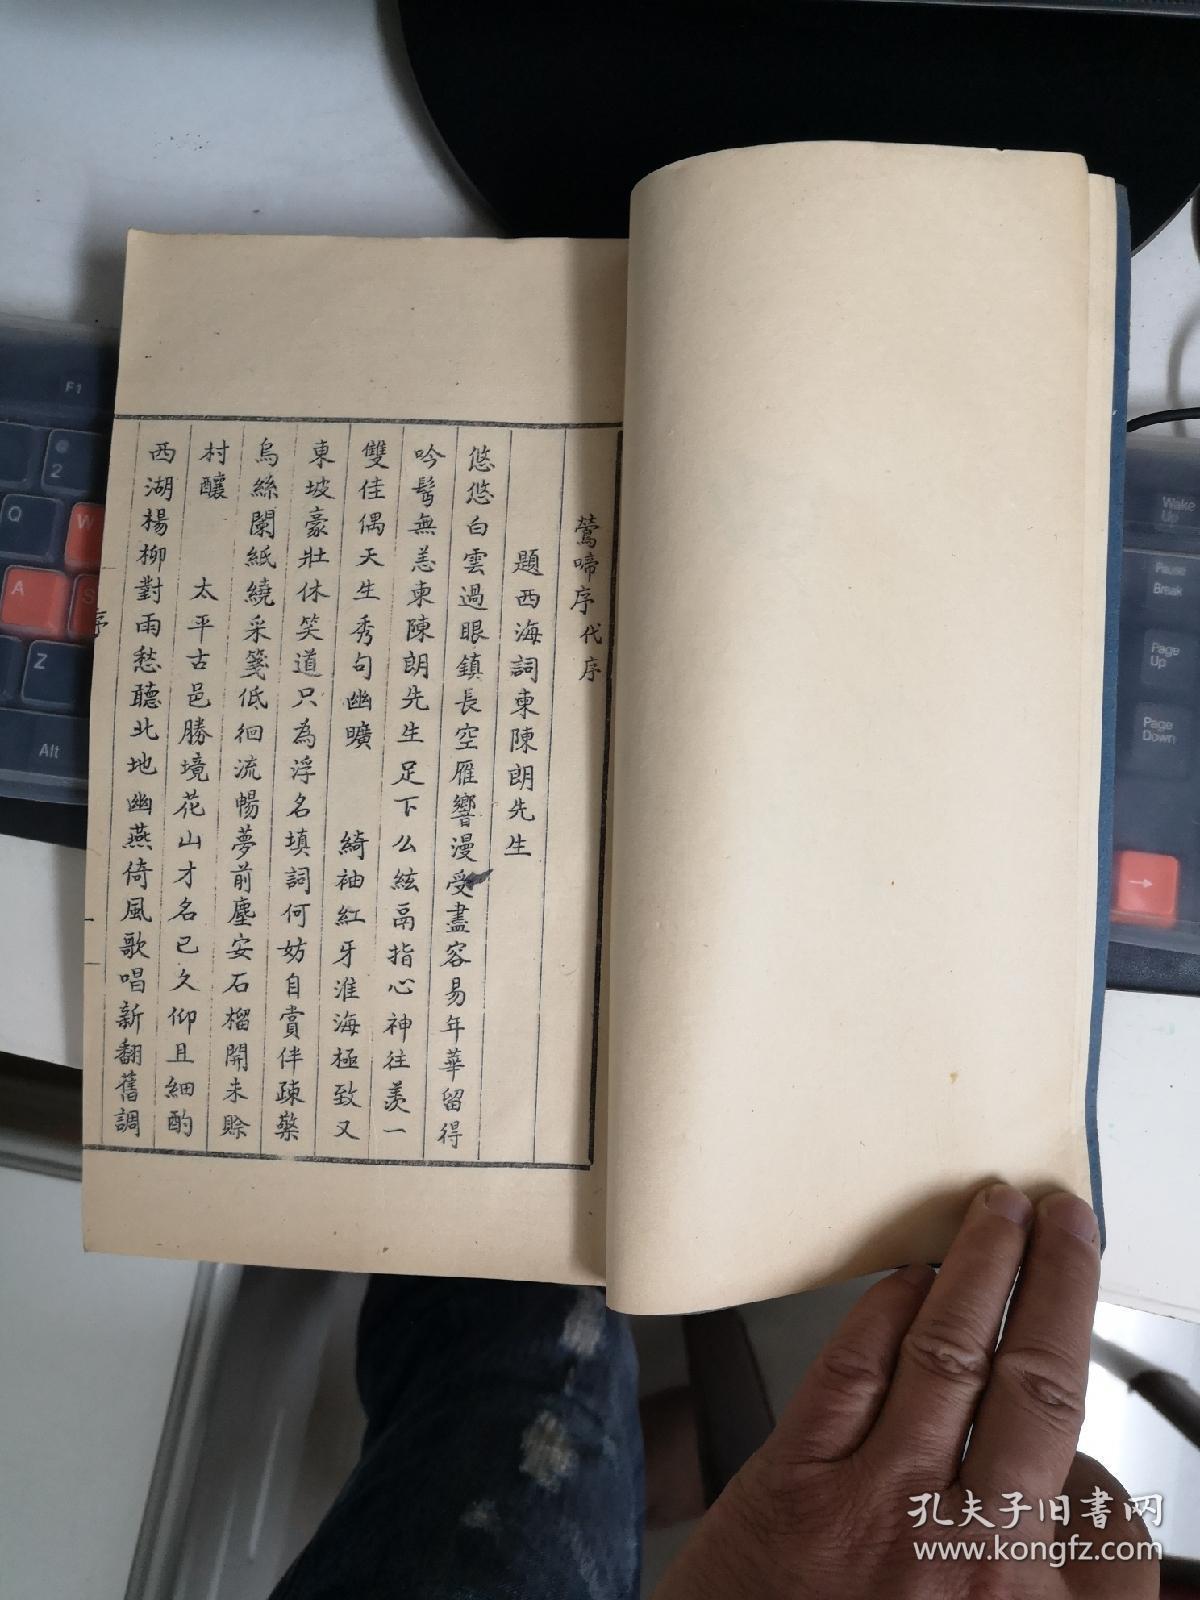 鶯啼序代序
題西海詞柬陳朗先生
悠悠白雲過眼鎮長空雁響漫受盡容易年華留得
吟髩無恙柬陳朗先生足下么絃鬲指心神往羨一
雙佳偶天生秀句幽曠　綺袖紅牙淮海極致又
東坡豪壯休笑道只為浮名填詞何妨自賞伴疎櫱
烏絲闌紙繞采箋低徊流暢夢前塵安石榴開未賒
村釀　太平古邑勝境花山才名已久仰且細酌
西湖楊柳對雨愁聽北地幽燕倚風歌唱新翻舊調
序
F1
@
2
Q
W
A
S
Z
Alt
Wake Up
Pause
Break
Page Up
Page Down
→
孔夫子旧书网
www.kongfz.com